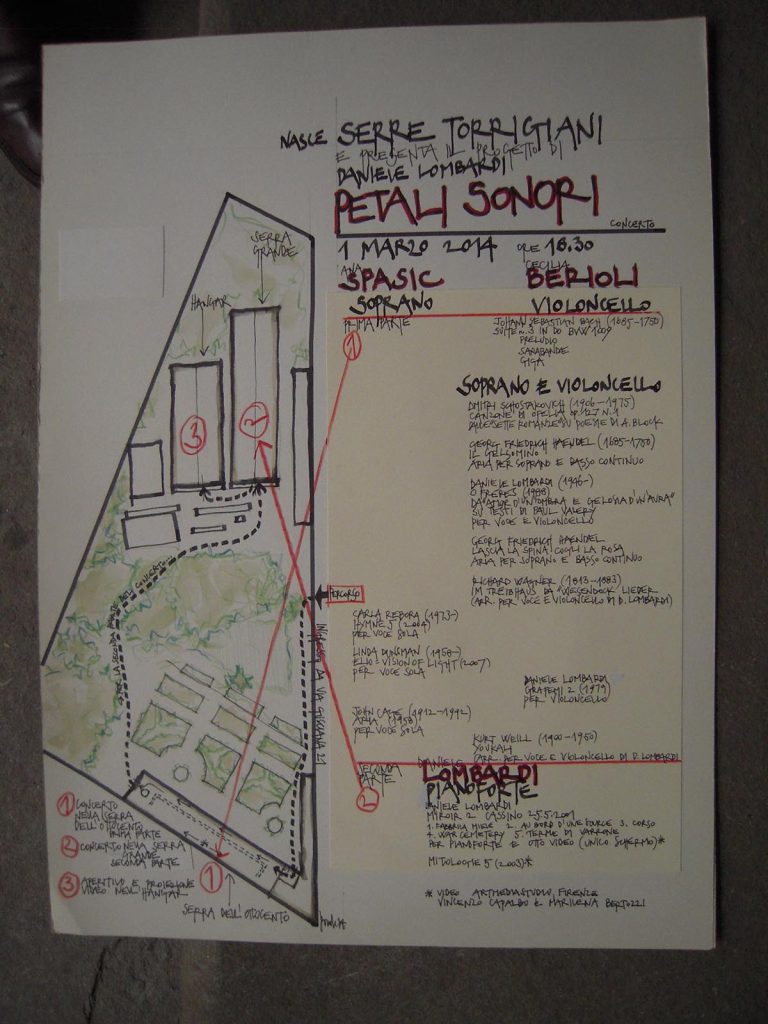 NASCE SERRE TORRIGIANI
E PRESENTA IL PROGETTO DI
DANIELE LOMBARDI
PETALI SONORI
CONCERTO
1 MARZO 2014 ORE 18.30
ANA CECILIA
SPASIC BERIOLI
SOPRANO VIOLONCELLO
PRIMA PARTE
1
JOHANN SEBASTIAN BACH (1685-1750)
SUITE N. 3 IN DO BWV 1009
PRELUDIO
SARABANDE
GIGA
SOPRANO E VIOLONCELLO
DMITRI SCHOSTAKOVICH (1906-1975)
CANZONE DI OFELIA OP. 127 N. 1
DALLE SETTE ROMANZE SU POESIE DI A. BLOCK
GEORG FRIEDRICH HAENDEL (1685-1750)
IL GELSOMINO
ARIA PER SOPRANO E BASSO CONTINUO
DANIELE LOMBARDI (1946-)
O FRERES (1988)
DA "AMOR D'UN'OMBRA E GELOSIA D'UN'AURA"
SU TESTI DI PAUL VALERY
PER VOCE E VIOLONCELLO
GEORG FRIEDRICH HAENDEL
LASCIA LA SPINA COGLI LA ROSA
ARIA PER SOPRANO E BASSO CONTINUO
RICHARD WAGNER (1813-1883)
IM TREIBHAUS DA WESENDOCK LIEDER
(ARR. PER VOCE E VIOLONCELLO DI D. LOMBARDI)
CARLA REBORA (1973-)
HYMNE 5 (2004)
PER VOCE SOLA
LINDA DUNSMAN (1958-
ELIO= VISION OF LIGHT (2007)
PER VOCE SOLA
DANIELE LOMBARDI
GRAFEMI 2 (1979)
PER VIOLONCELLO
JOHN CAGE (1912-1992)
ARIA (1958)
PER VOCE SOLA
KURT WEILL (1900-1950)
YOUKALI
(ARR. PER VOCE E VIOLONCELLO DI D. LOMBARDI
SECONDA
PARTE
2
DANIELE
LOMBARDI
PIANOFORTE
DANIELE LOMBARDI
MIROIR 2 CASSINO 25.5.2001
1. FABBRICA MIELE 2. AU BORD D'UNE SOURCE 3. CORSO
4. WAR CEMETERY 5. TERME DI VARRONE
PER PIANOFORTE E OTTO VIDEO (UNICO SCHERMO)*
MITOLOGIE 5 (2003)*
* VIDEO ARTMEDIASTUDIO, FIRENZE
VINCENZO CAPALBO E MARILENA BERTOZZI
SERRA
GRANDE
HANGAR
3
2
PERCORSO
INGRESSO DA VIA GUSCIANA 21
PER LA SECONDA PARTE DEL CONCERTO
1 CONCERTO
NELLA SERRA
DELL'OTTOCENTO
PRIMA PARTE
2 CONCERTO NELLA SERRA
GRANDE
SECONDA PARTE
3 APERITIVO E PROIEZIONE
VIDEO NELL'HANGAR
1
SERRA DELL'OTTOCENTO